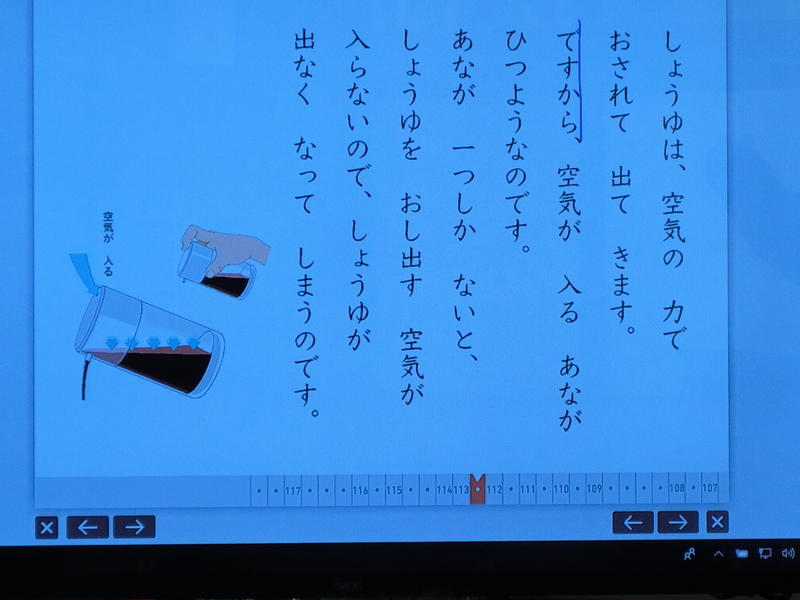 しょうゆは、空気の　力で
おされて　出て　きます。
ですから、空気が　入る　あなが
ひつようなのです。
あなが　一つしか　ないと、
しょうゆを　おし出す　空気が
入らないので、しょうゆが
出なく　なって　しまうのです。
空気が　入る
117 116 115 114 113 112 111 110 109 108 107